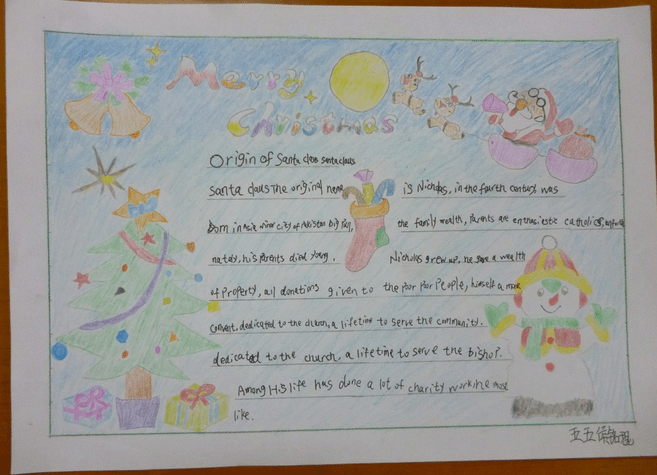 Merry
Christmas
Origin of Santa claus santa claus
santa claus The original name is Nicholas, in the fourth century was
Born in Asia minor city of the family wealth, parents are enthusiastic catholics,
nately, his parents died young. Nicholas grew up, he gave a wealth
of Property, all donations given to the Poor Por People, himself a
Convent, dedicated to the church, a lifetime to serve the community.
dedicated to the church, a lifetime to serve the bishop.
Among His life has done a lot of charity work he most
like.
五五